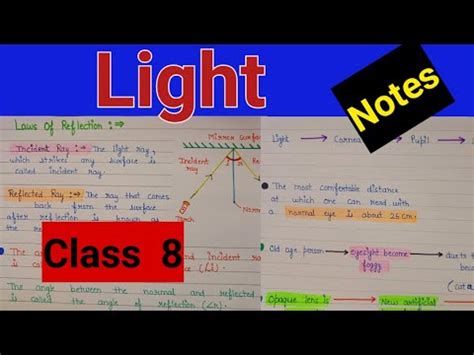 Light
Notes
Class 8
Laws Of Reflection :⇒
Incident Ray :⇒ The light ray,
which strikes any surface is
called incident ray.
Reflected Ray :⇒ The ray that comes
back from the surface
after reflection is known as
the
The
The angle between the normal and reflected
is called the angle of reflection (∠r).
Mirror surface
Incident
Ray
i
r
Torch
Norma
and incident ra
(∠i)
Light → Cornea → Pupil
The most comfortable distance
at which one can read with
a normal eye is about 25 cm.
Old age person → eyesight become
foggy
due to
(cata
Opaque lens is
New artificial